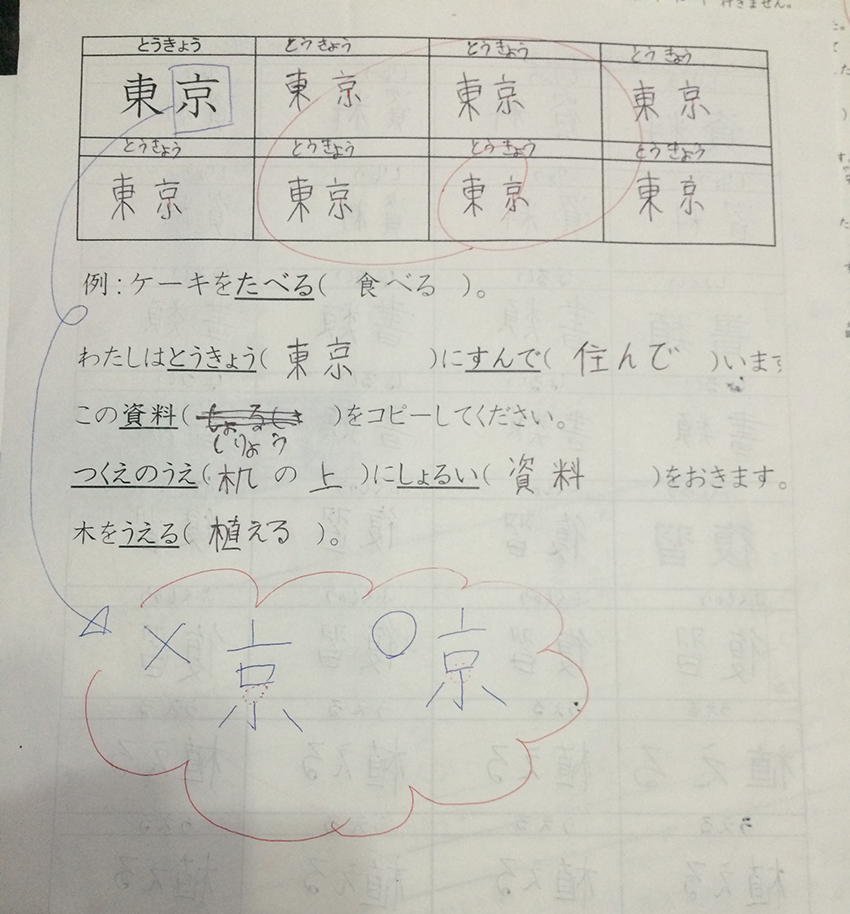 行きません。
とうきょう とうきょう とうきょう とうきょう
東京 東京 東京 東京
とうきょう とうきょう とうきょう とうきょう
東京 東京 東京 東京
例：ケーキをたべる( 食べる )。
わたしはとうきょう( 東京 )にすんで( 住んで )います
この資料( しりょう )をコピーしてください。
つくえのうえ( 机の上 )にしょるい( 資料 )をおきます。
木をうえる( 植える )。
× 京 ○ 京